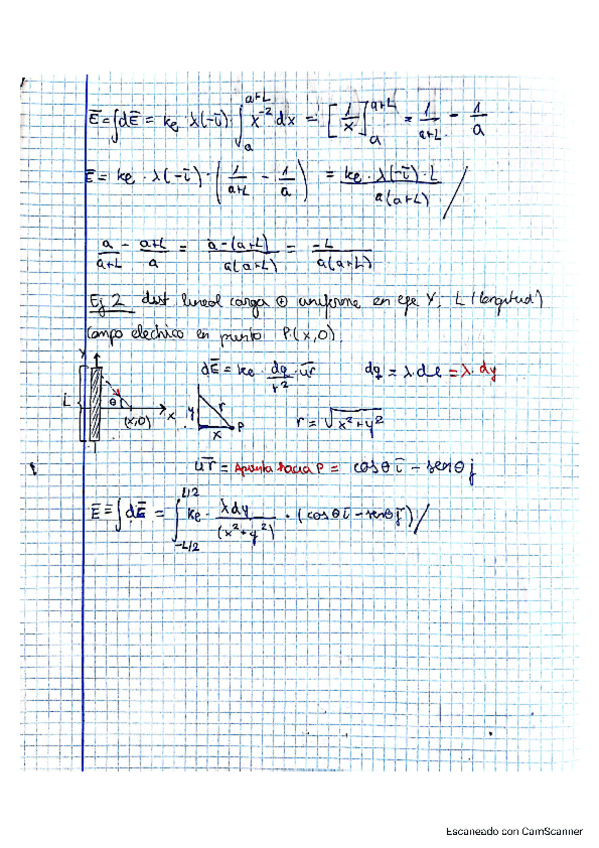 E̅ = ∫dE̅ = ke λ(-i̅) · ∫ₐᵃ⁺ᴸ x⁻² dx = [1/x]ₐᵃ⁺ᴸ = 1/(a+L) - 1/a
E̅ = ke · λ(-i̅) · (1/(a+L) - 1/a) = ke · λ(-i̅) · L / a(a+L) /
a/(a+L) - (a+L)/a = (a-(a+L))/(a(a+L)) = -L/(a(a+L))
Ej 2 dist lineal carga ⊕ uniforme en eje Y, L (longitud)
Campo electrico en punto P(x,0).
Y L θ x (x,0)
y r x P
dE̅ = ke · dq/r² · u̅r dq = λ.dl = λ.dy
r = √(x²+y²)
u̅r = Apunta hacia P = cosθ i̅ - senθ j
E̅ = ∫dE̅ = ∫₋L/₂^L/2 ke · λdy/(x²+y²) · (cosθ i̅ - senθ j̅) /
Escaneado con CamScanner